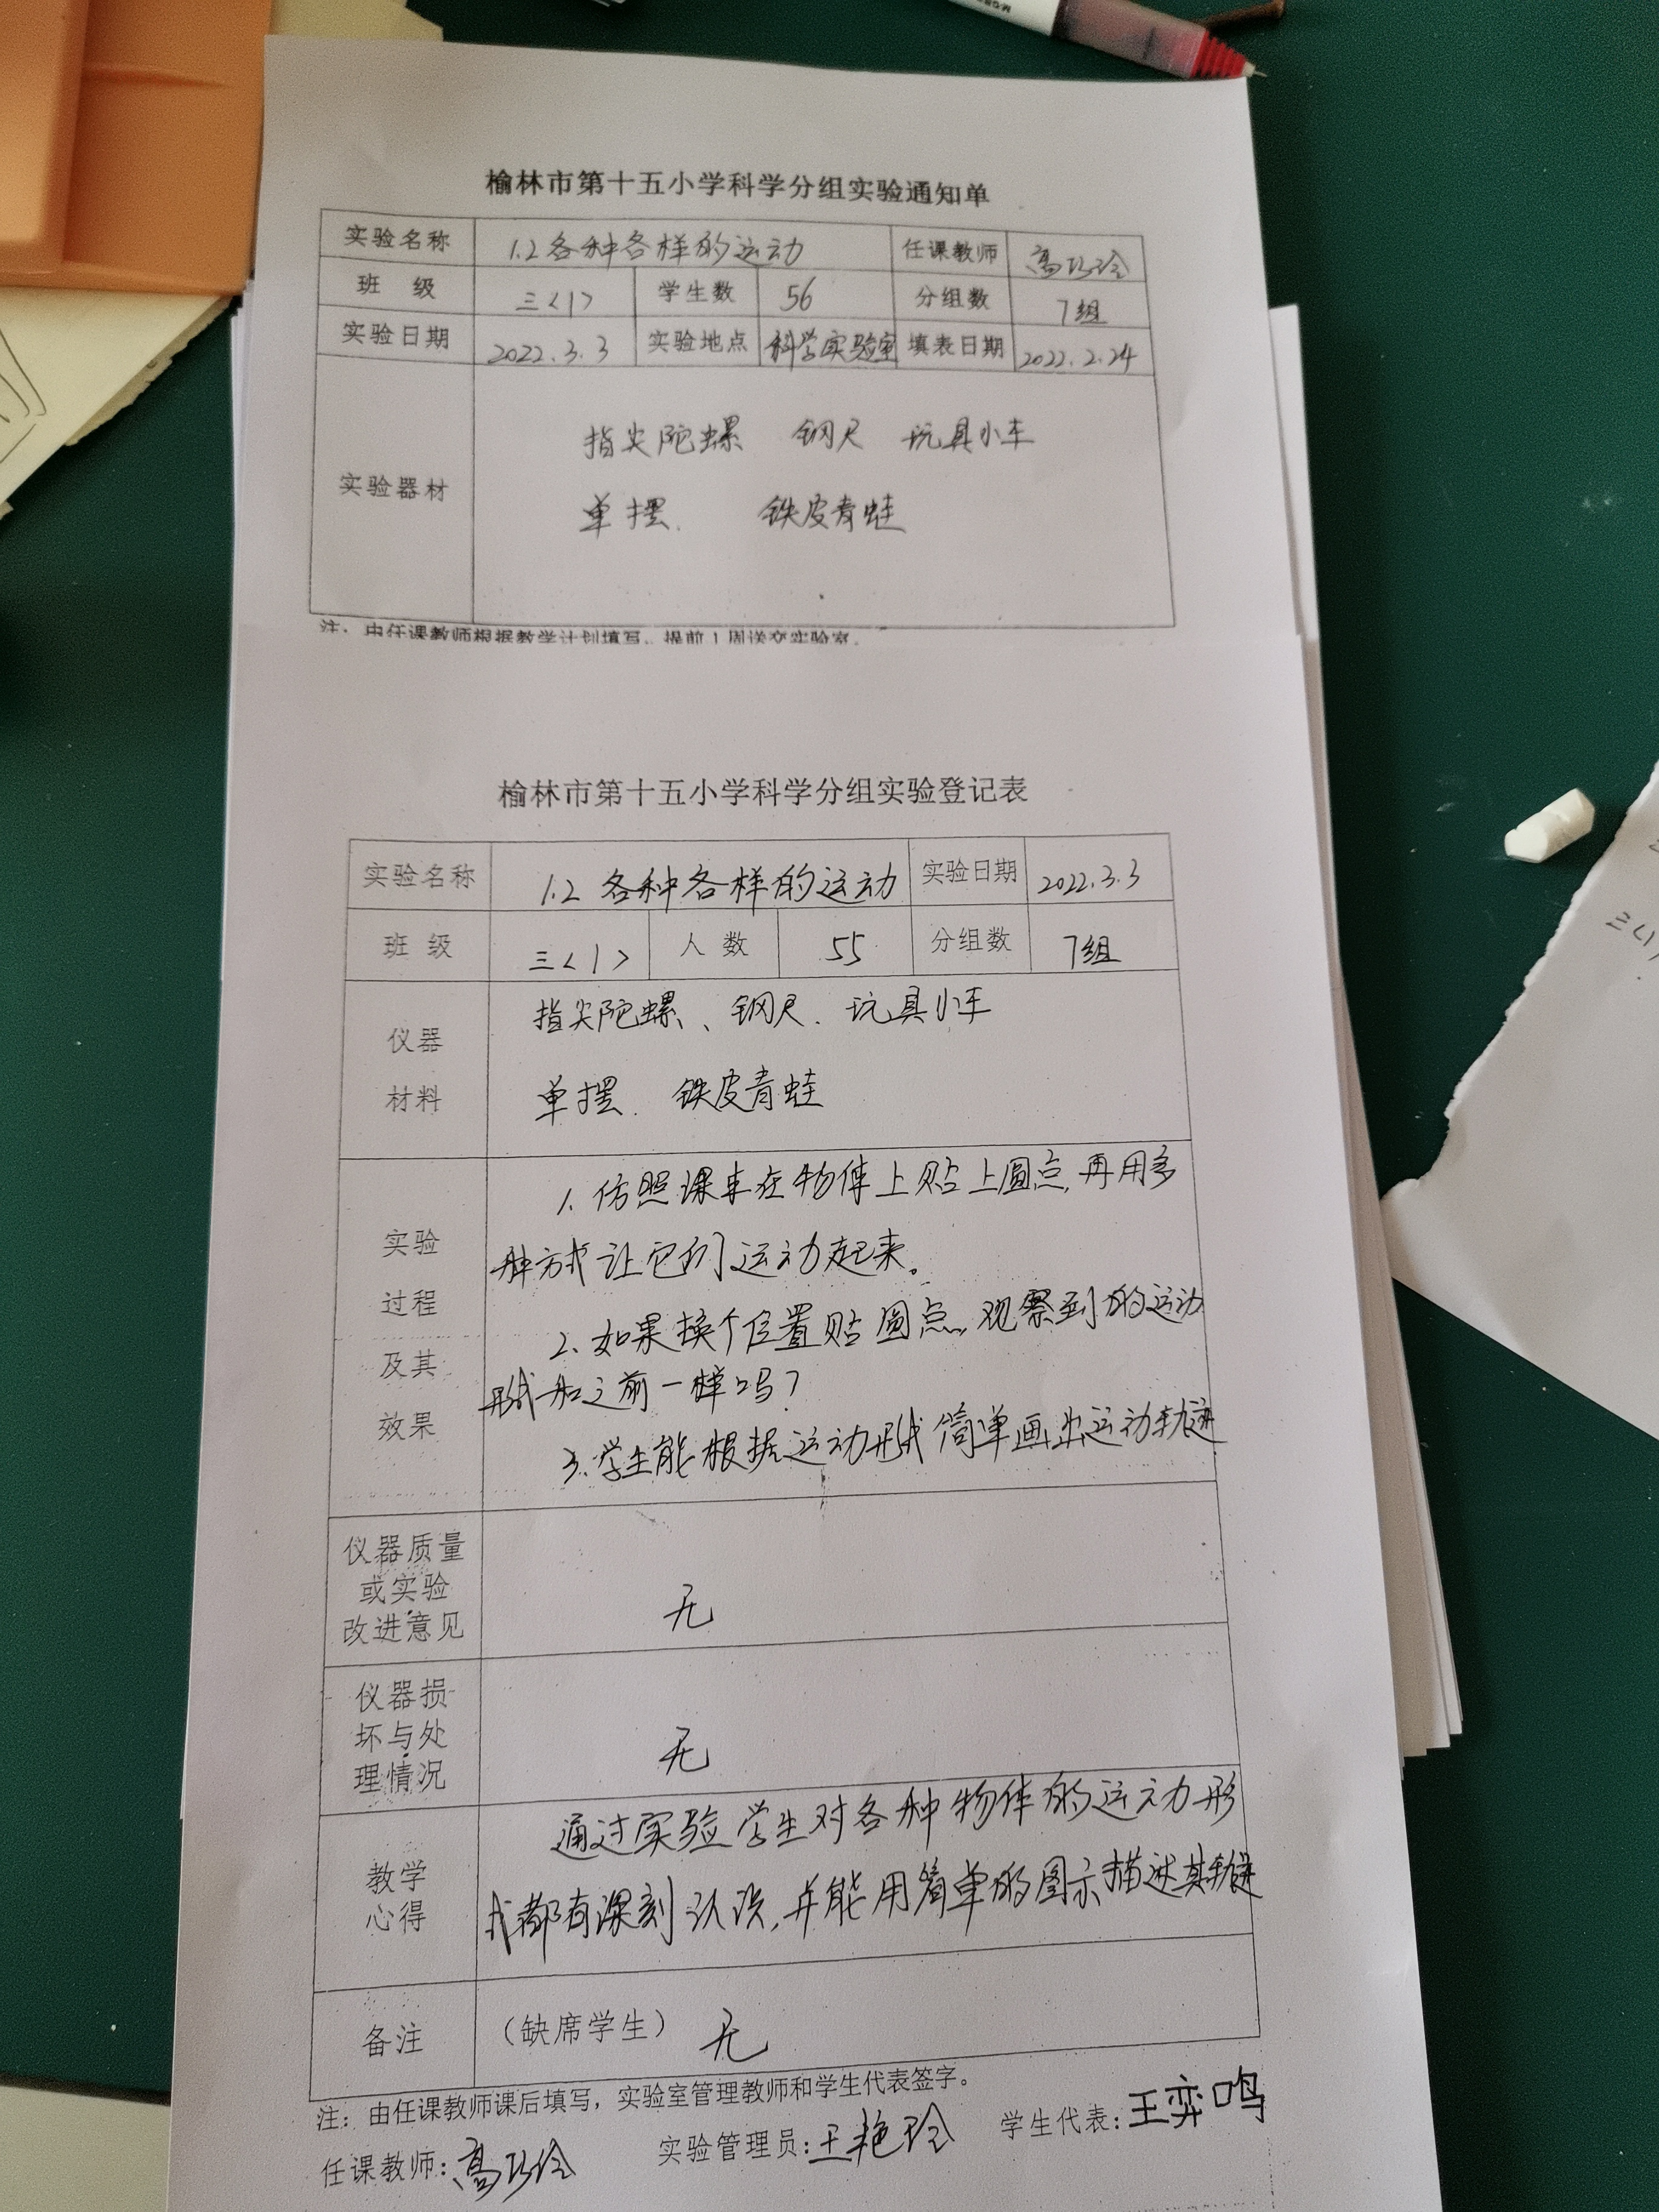 榆林市第十五小学科学分组实验通知单
实验名称 1.2各种各样的运动 任课教师 高巧玲
班 级 三<1> 学生数 56 分组数 7组
实验日期 2022.3.3 实验地点 科学实验室 填表日期 2022.2.24
指尖陀螺 钢尺 玩具小车
实验器材
单摆. 铁皮青蛙
注：由任课教师根据教学计划填写，提前1周送交实验室。
榆林市第十五小学科学分组实验登记表
实验名称 1.2 各种各样的运动 实验日期 2022.3.3
班 级 三<1> 人 数 55 分组数 7组
指尖陀螺、钢尺.玩具小车
仪器
材料
单摆. 铁皮青蛙
实验
过程
及其
效果
1.仿照课本在物体上贴上圆点,再用多
种方式让它们运动起来。
2.如果换个位置贴圆点,观察到的运动
形式和之前一样吗?
3.学生能根据运动形式简单画出运动轨迹
仪器质量
或实验
改进意见
无
仪器损
坏与处
理情况
无
教学
心得
通过实验学生对各种物体的运动形
式都有深刻认识,并能用简单的图示描述其轨迹
备注 （缺席学生） 无
注：由任课教师课后填写，实验室管理教师和学生代表签字。
任课教师:高巧玲 实验管理员:王艳玲 学生代表:王弈鸣